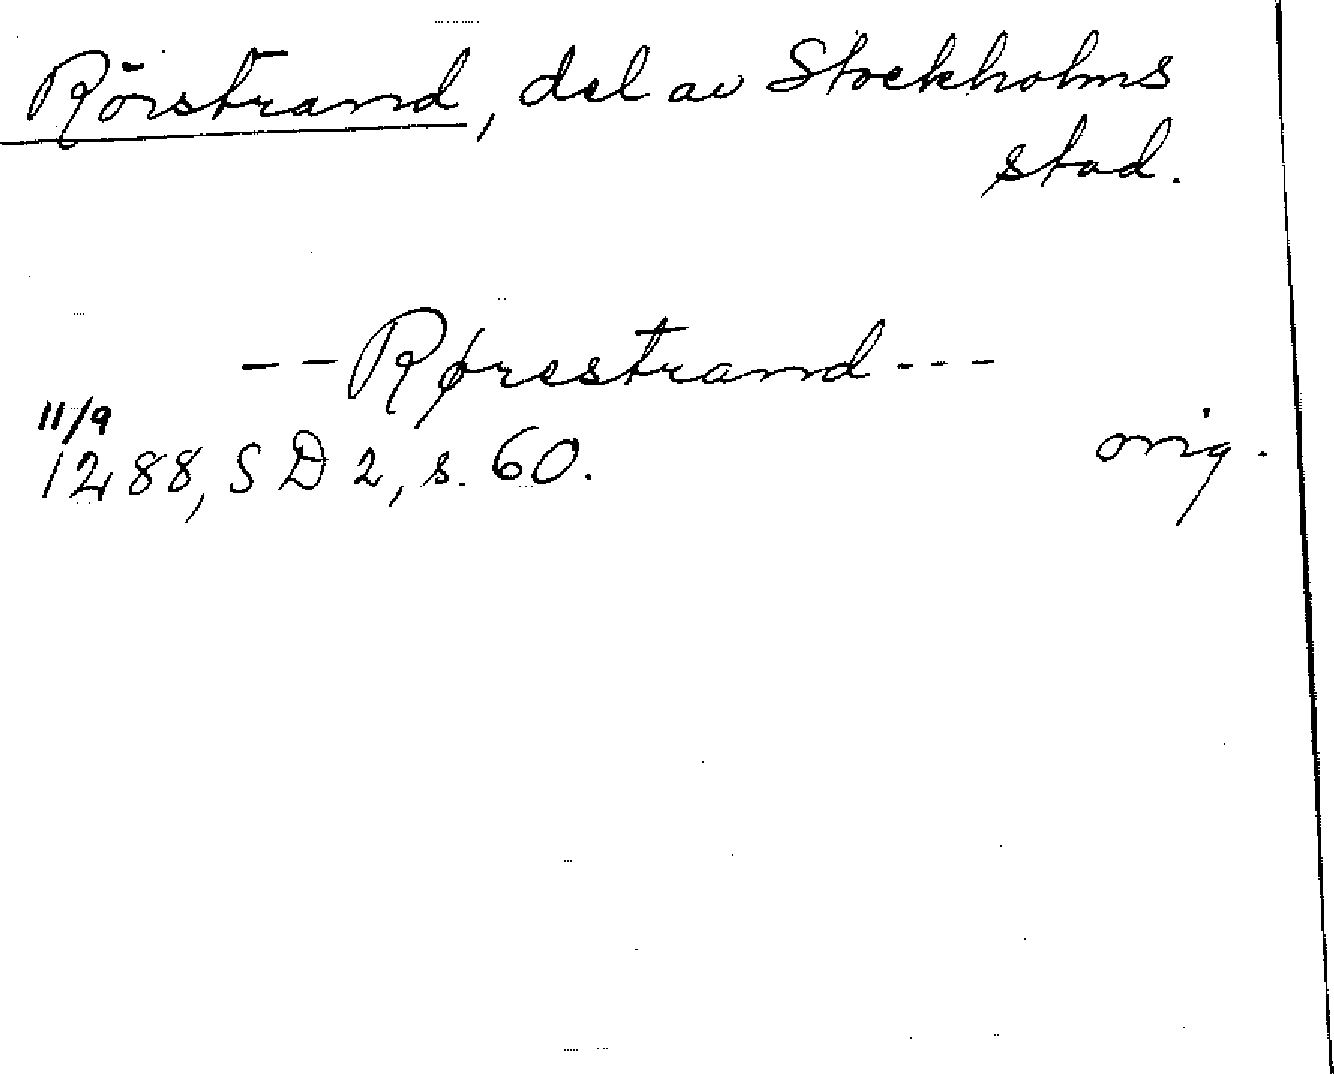 Rörstrand, del av Stockholms
stad.
--Rørestrand---
11/9
1288, SD 2, s. 60.
orig.